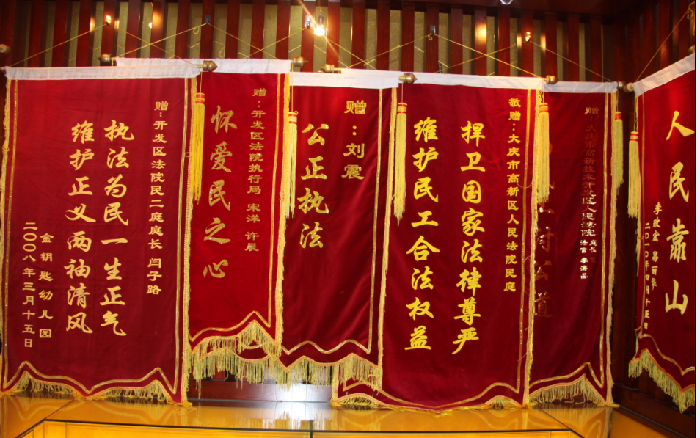 赠:开发区法院民二庭庭长 闫子路
执法为民一生正气
维护正义两袖清风
金钥匙幼儿园
二00八年三月十五日
赠:开发区法院执行局 宋洋 许展
怀爱民之心
赠:刘震
公正执法
敬赠:大庆市高新区人民法院民庭
捍卫国家法律尊严
维护民工合法权益
人民靠山